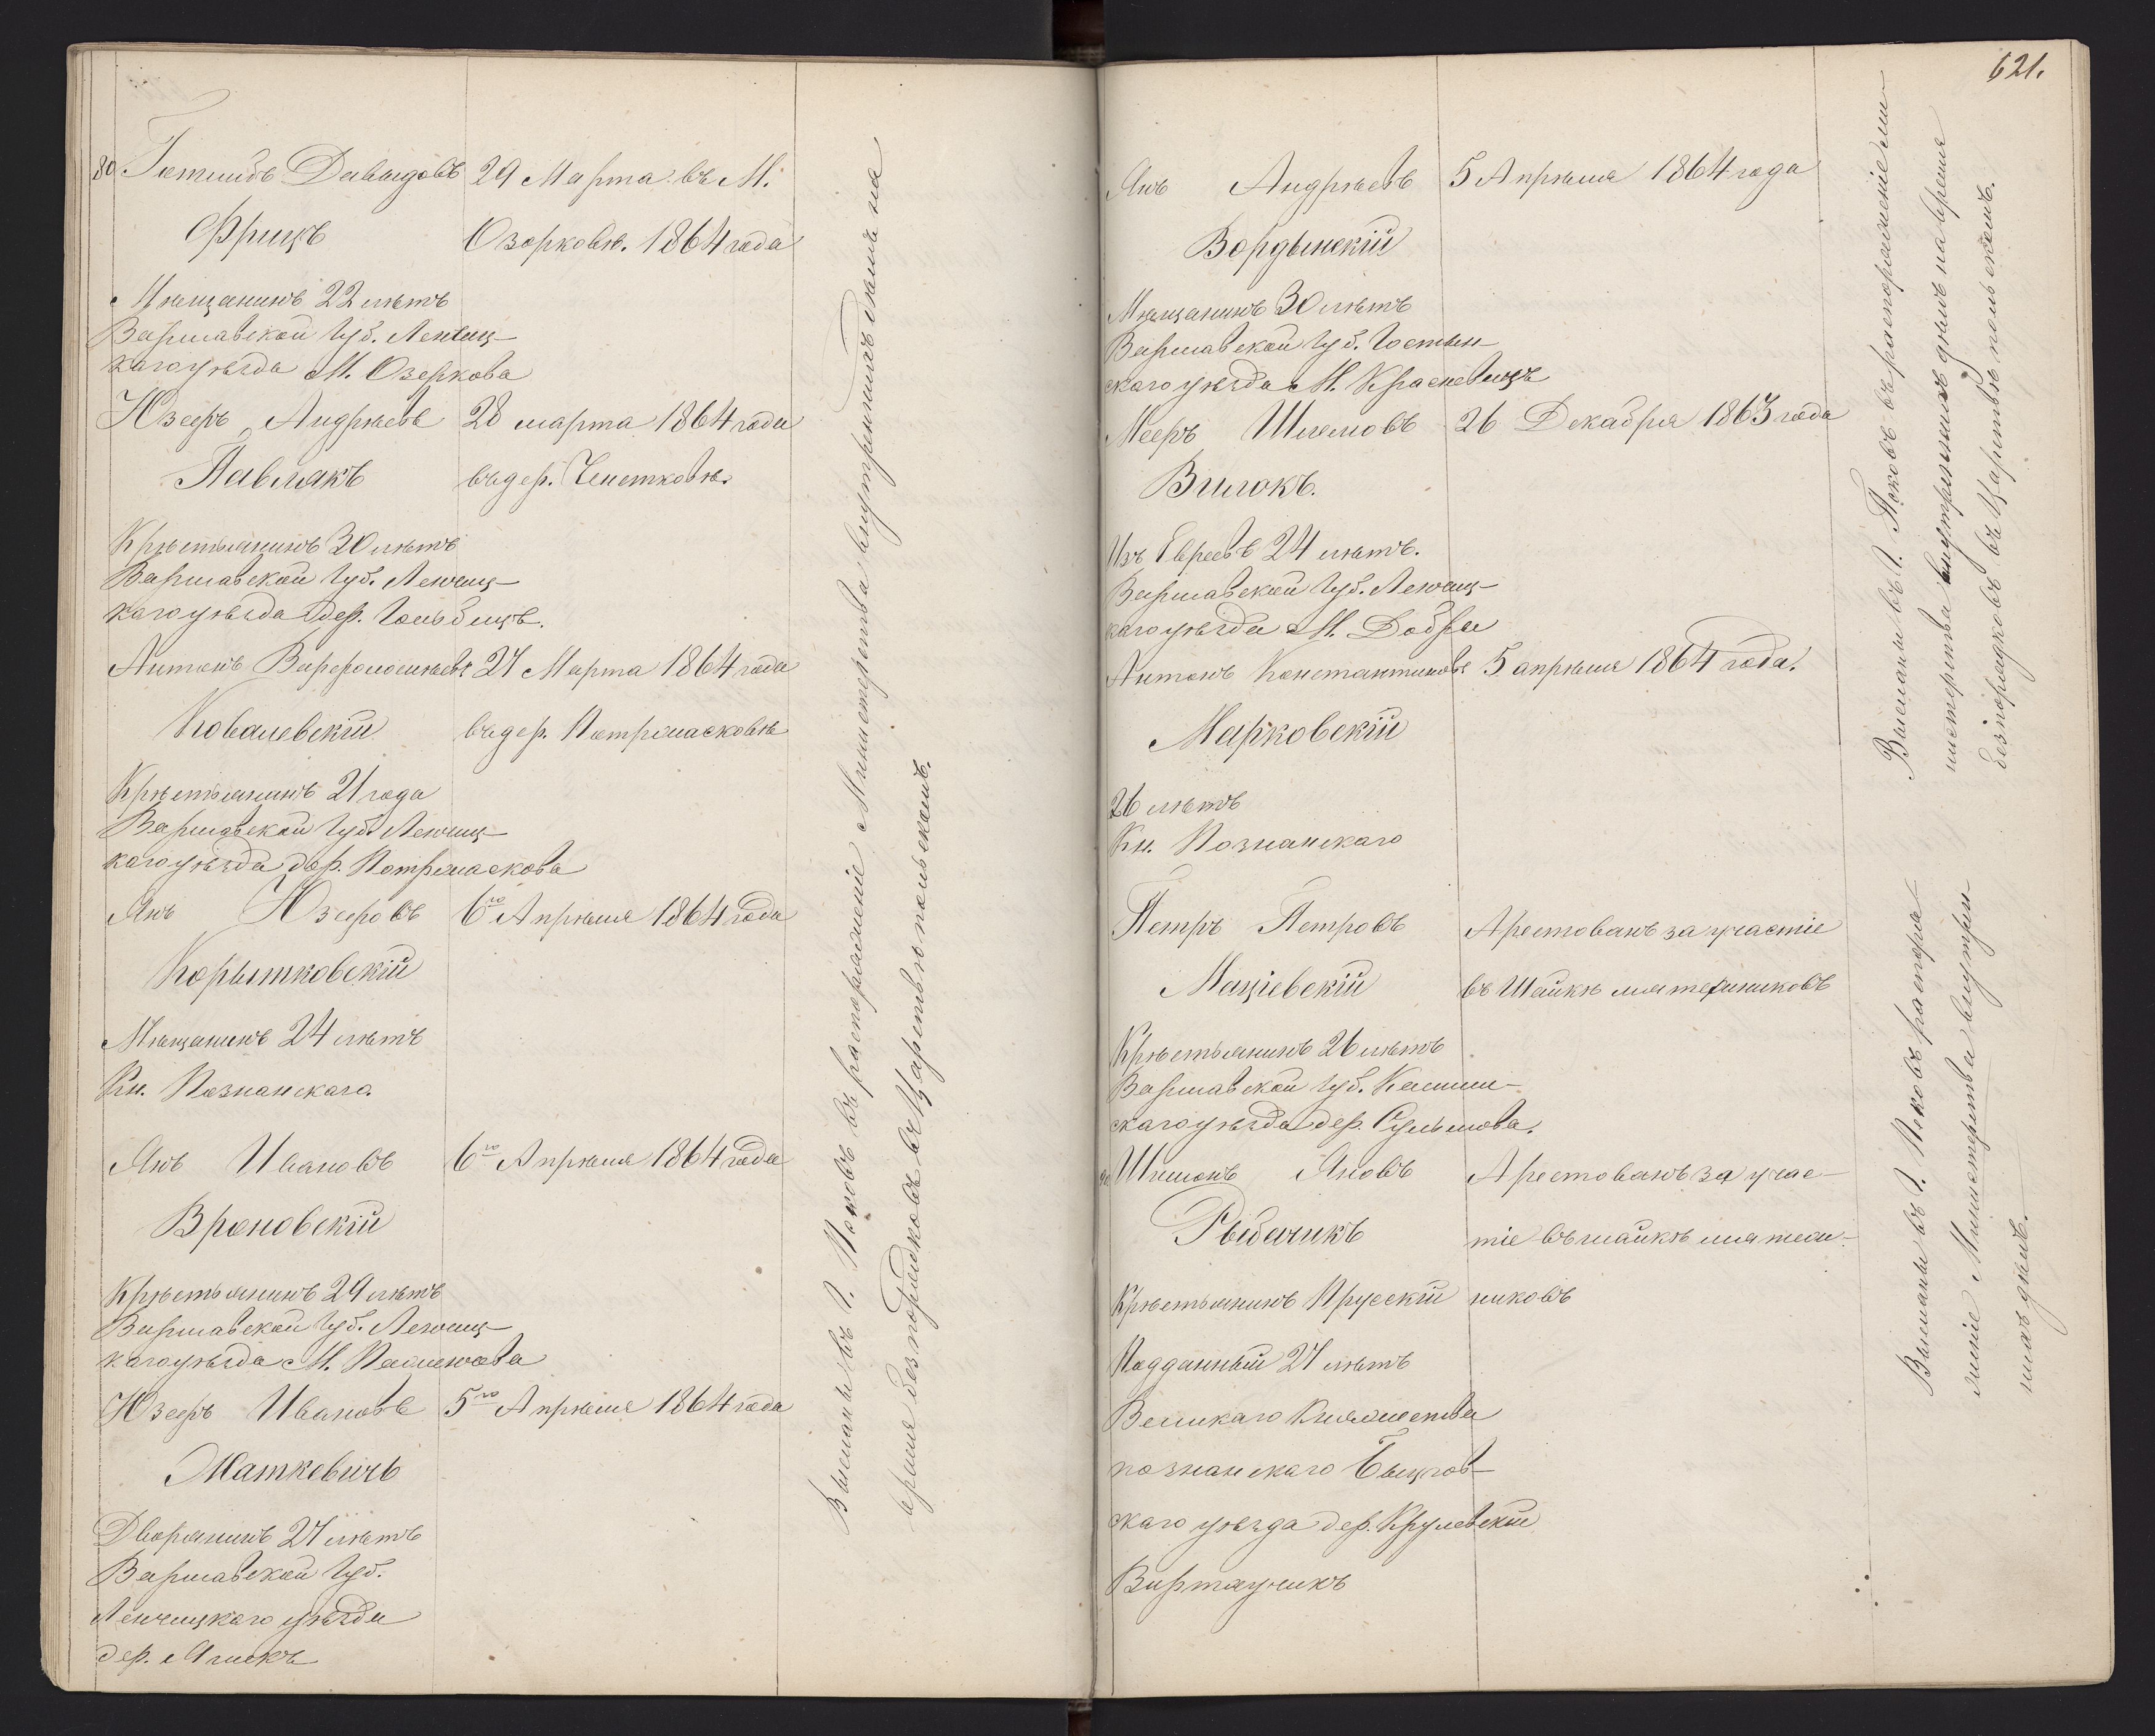 80 Готлибъ Давыдовъ
Фрицъ
Мѣщанинъ 22 лѣтъ
Варшавской Губ. Ленчиц-
каго уѣзда М. Озеркова
29 Марта въ М.
Озорковѣ. 1864 года
Юзефъ Андрѣевъ
Павлякъ
Крѣстьянинъ 30 лѣтъ
Варшавской Губ. Ленчиц-
каго уѣзда дер. Гольбицъ.
28 марта 1864 года
въ дер.
Антонъ Варфоломѣевъ
Ковалевскій
Крѣстьянинъ 21 года
Варшавской Губ. Ленчиц-
каго уѣзда дер.
27 Марта 1864 года
въ дер.
Янъ Юзефовъ
Корытковскій
Мѣщанинъ 24 лѣтъ
Кн. Познанскаго.
6го Апрѣля 1864 года
Янъ Ивановъ
Вроновскій
Крѣстьянинъ 29 лѣтъ
Варшавской Губ. Ленчиц-
каго уѣзда М.
6го Апрѣля 1864 года
Юзефъ Ивановъ
Маткевичъ
Дворянинъ 27 лѣтъ
Варшавской Губ.
Ленчицкаго уѣзда
дер.
5го Апрѣля 1864 года
Высланы въ Г. Псковъ въ распоряженіе Министерства внутреннихъ дѣлъ на
время безпорядковъ въ Царствѣ польскомъ.
621.
Янъ Андрѣевъ
Вордынскій
Мѣщанинъ 30 лѣтъ
Варшавской Губ. Гостын-
скаго уѣзда М. Красневицъ
5 Апрѣля 1864 года
Мееръ Шлемовъ
Вилокъ.
Изъ Евреевъ 24 лѣтъ.
Варшавской Губ. Ленчиц-
каго уѣзда М. Добры
26 Декабря 1863 года
Антонъ Константиновъ
Марковскій
26 лѣтъ
Кн. Познанскаго
5 апрѣля 1864 года.
Высланы въ Г. Псковъ въ распоряженіе Ми-
нистерства внутреннихъ дѣлъ на время
безпорядковъ въ Царствѣ польскомъ.
Петръ Петровъ
Мацѣевскій
Крѣстьянинъ 26 лѣтъ
Варшавской Губ. Калиш-
скаго уѣзда дер. Сульмова.
Арестованъ за участіе
въ Шайкѣ мятежниковъ
Шимонъ Яновъ
Рыбачикъ
Крѣстьянинъ Прусскій
Подданный 27 лѣтъ
Великаго Княжества
познанскаго
скаго уѣзда дер. Крулевскій
Арестованъ за учас-
тіе въ шайкѣ мятеж-
никовъ
Высланы въ Г. Псковъ распоря-
женіе Министерства внутрен
нихъ дѣлъ.